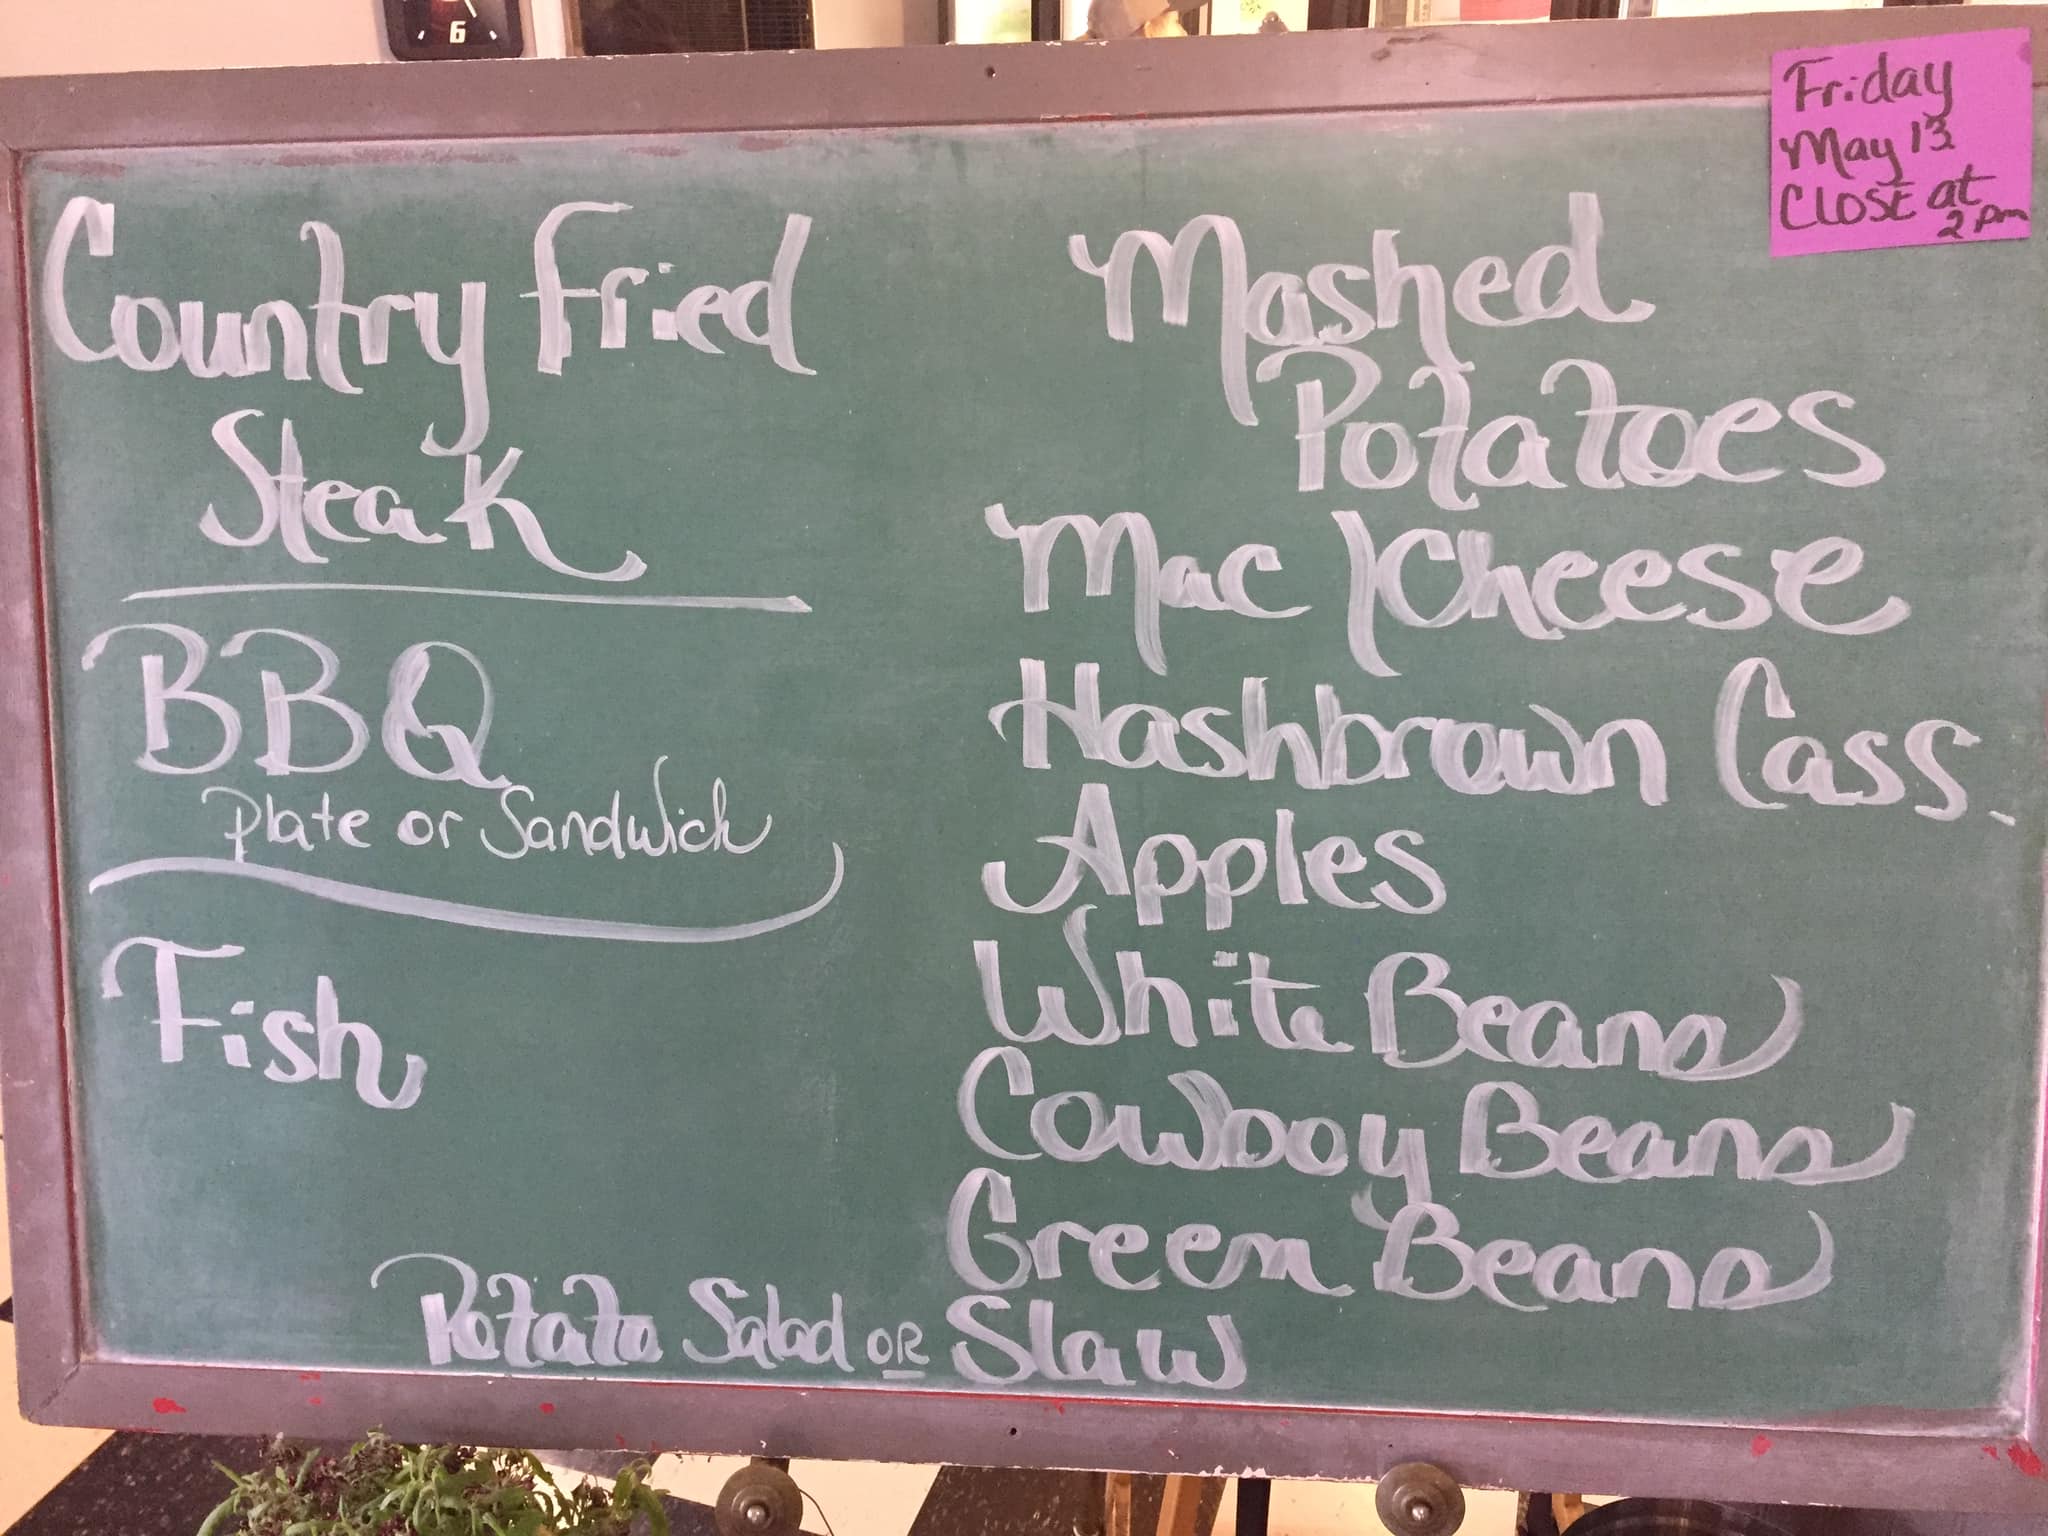 6
Friday
May 13
Close at
2 pm
Country Fried
Steak
BBQ
Plate or Sandwich
Fish
Mashed
Potatoes
Mac / Cheese
Hashbrown Cass.
Apples
White Beans
Cowboy Beans
Green Beans
Potato Salad OR Slaw